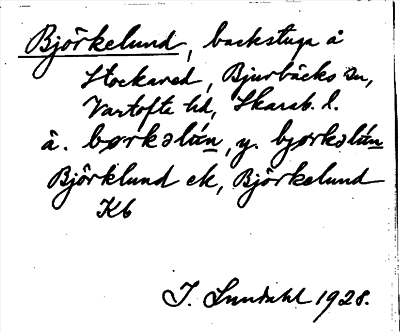 Björkelund, backstuga å
Stockared, Bjurbäcks sn,
Vartofte hd, Skarab. l.
ä. børkəlún, y. bjørkəlún
Björklund ek, Björkelund
Kb
I. Lundahl 1928.